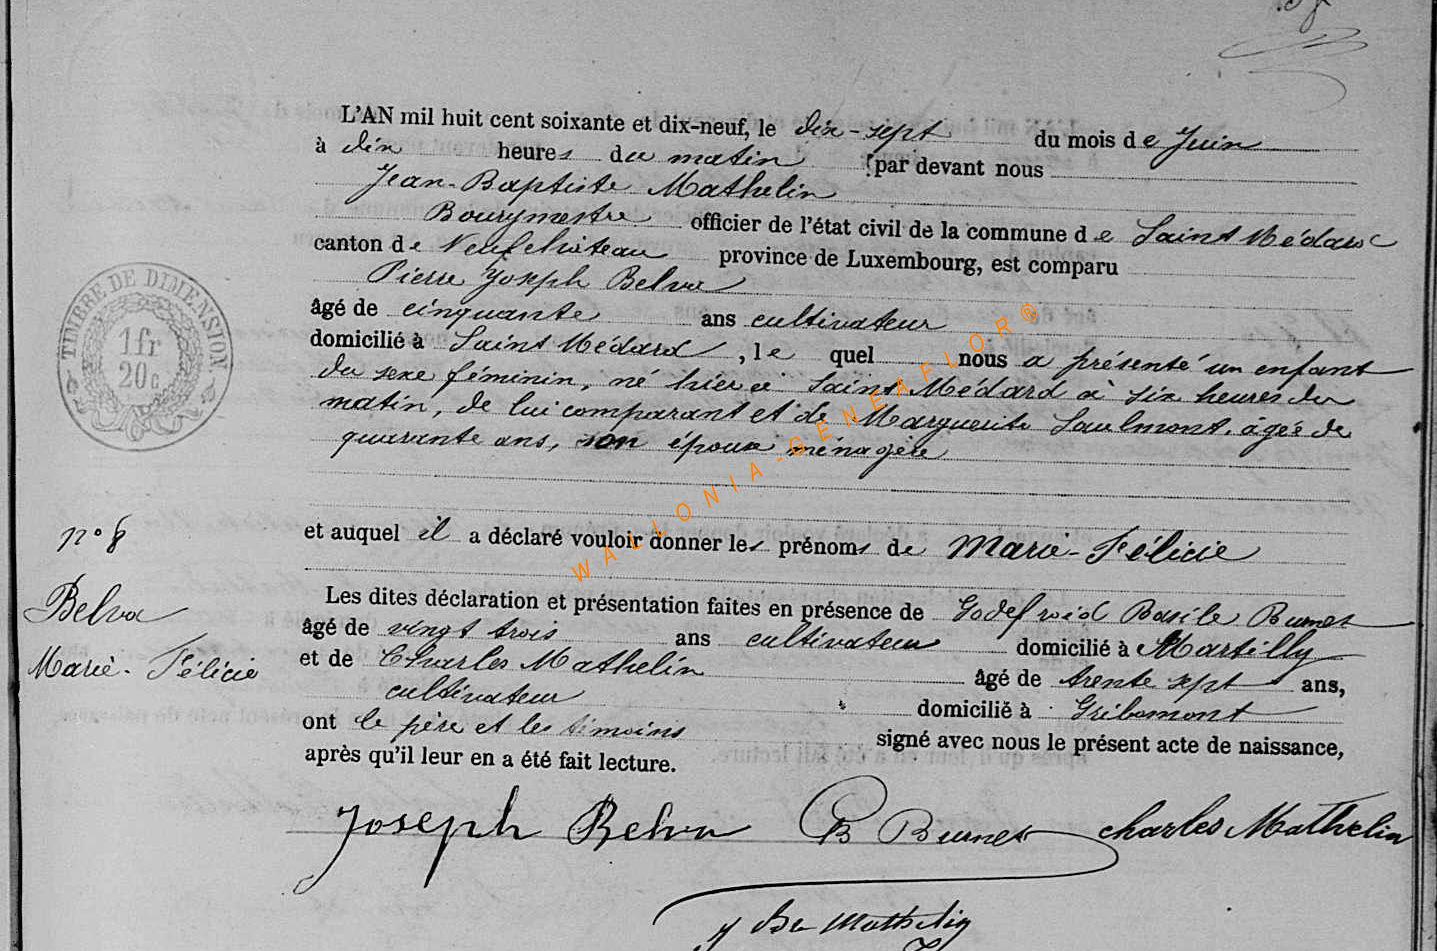 L'AN mil huit cent soixante et dix-neuf, le dix-sept du mois de Juin
à dix heures du matin par devant nous
Jean-Baptiste Mathelin
Bourgmestre officier de l'état civil de la commune de Saint Médard
canton de Neufchâteau province de Luxembourg, est comparu
Pierre Joseph Belva
âgé de cinquante ans cultivateur
domicilié à Saint Médard, le quel nous a présenté un enfant
du sexe féminin, né hier à Saint Médard à six heures du
matin, de lui comparant et de Marguerite Saulmont, âgée de
quarante ans, son épouse ménagère
et auquel il a déclaré vouloir donner les prénoms de Marie-Félicie
Les dites déclaration et présentation faites en présence de Godefroid Basile Burnet
âgé de vingt trois ans cultivateur domicilié à Martilly
et de Charles Mathelin âgé de trente sept ans,
cultivateur domicilié à Gribomont
ont le père et les témoins signé avec nous le présent acte de naissance,
après qu'il leur en a été fait lecture.
Joseph Belva GB Burnet Charles Mathelin
J Bte Mathelin
n° 8
Belva
Marie-Félicie
TIMBRE DE DIMENSION
1fr
20c.
WALLONIA-GENEAFLOR®